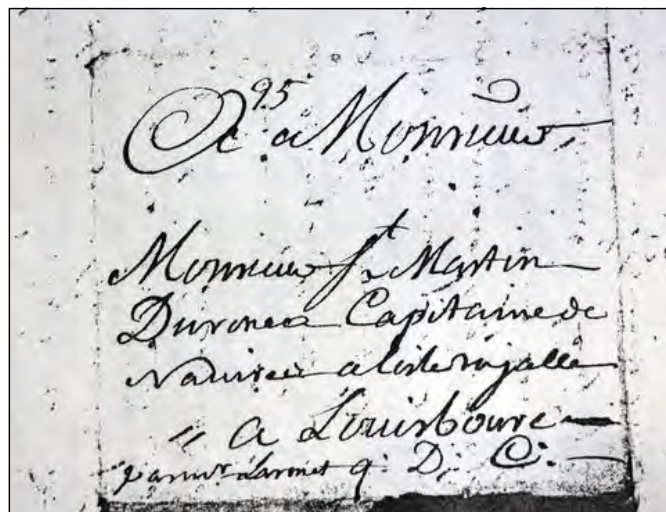 95
A Monsieur
Monsieur St Martin
Capitaine de
Navire a lisle royalle
" a Louisbourc
par mr q. D. C.